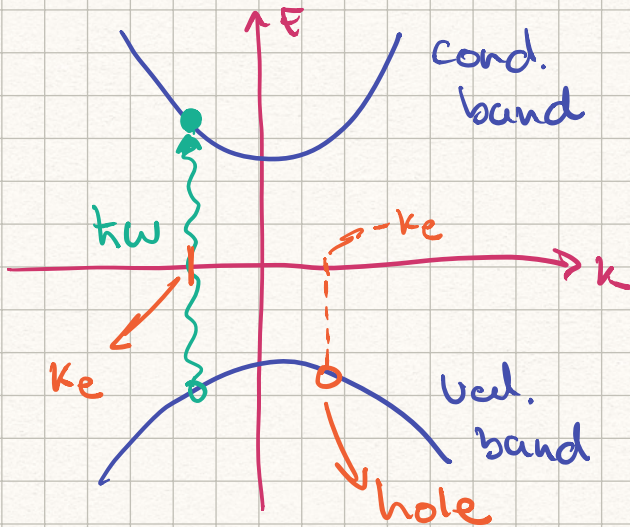 E
cond.
band
ħω
-ke
K
Ke
val.
band
hole